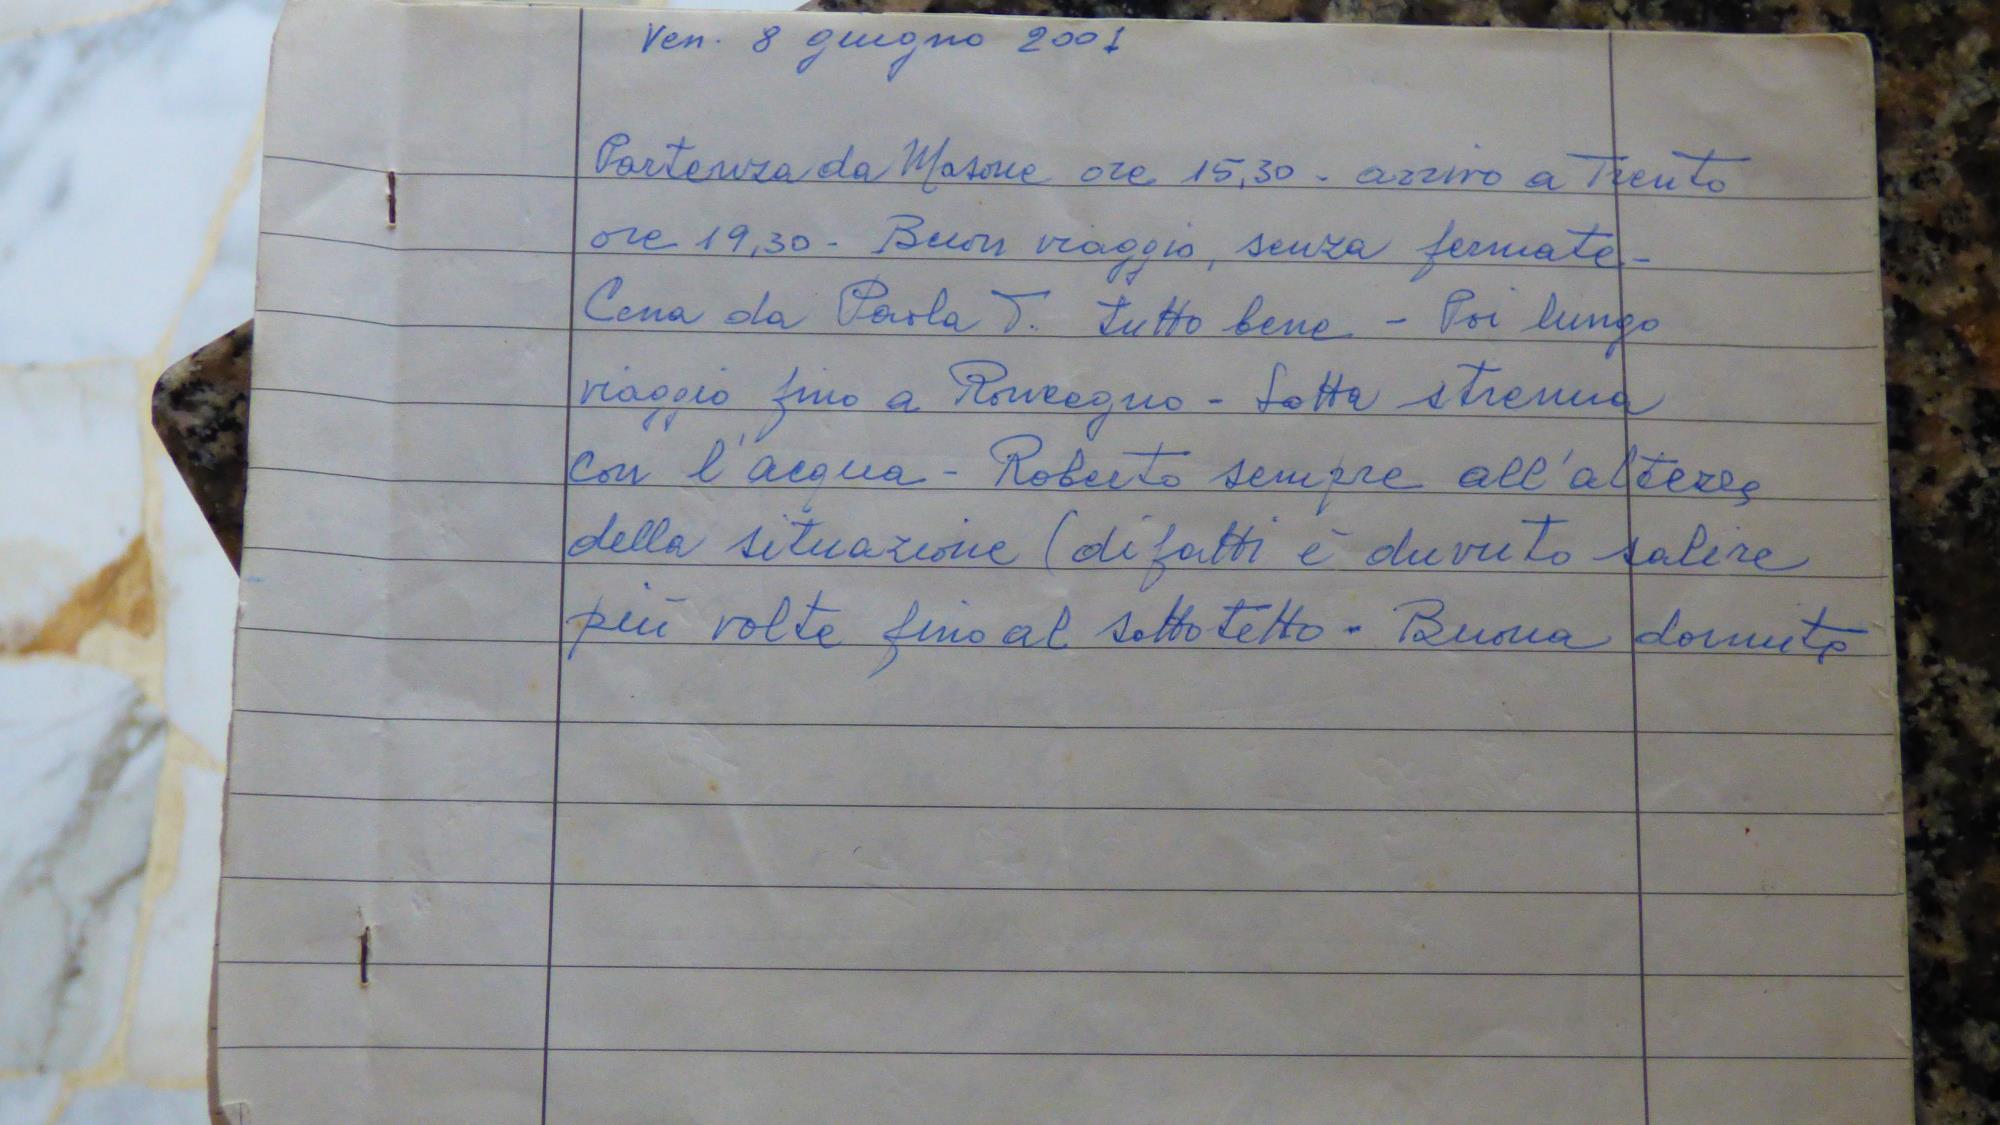 Ven. 8 giugno 2001
Partenza da Masone ore 15,30 - arrivo a Trento
ore 19,30 - Buon viaggio, senza fermate -
Cena da Paola T. tutto bene - Poi lungo
viaggio fino a Roncegno - Lotta strenua
con l'acqua - Roberto sempre all'altezza
della situazione (difatti è duvuto salire
più volte fino al sottotetto - Buona dormita